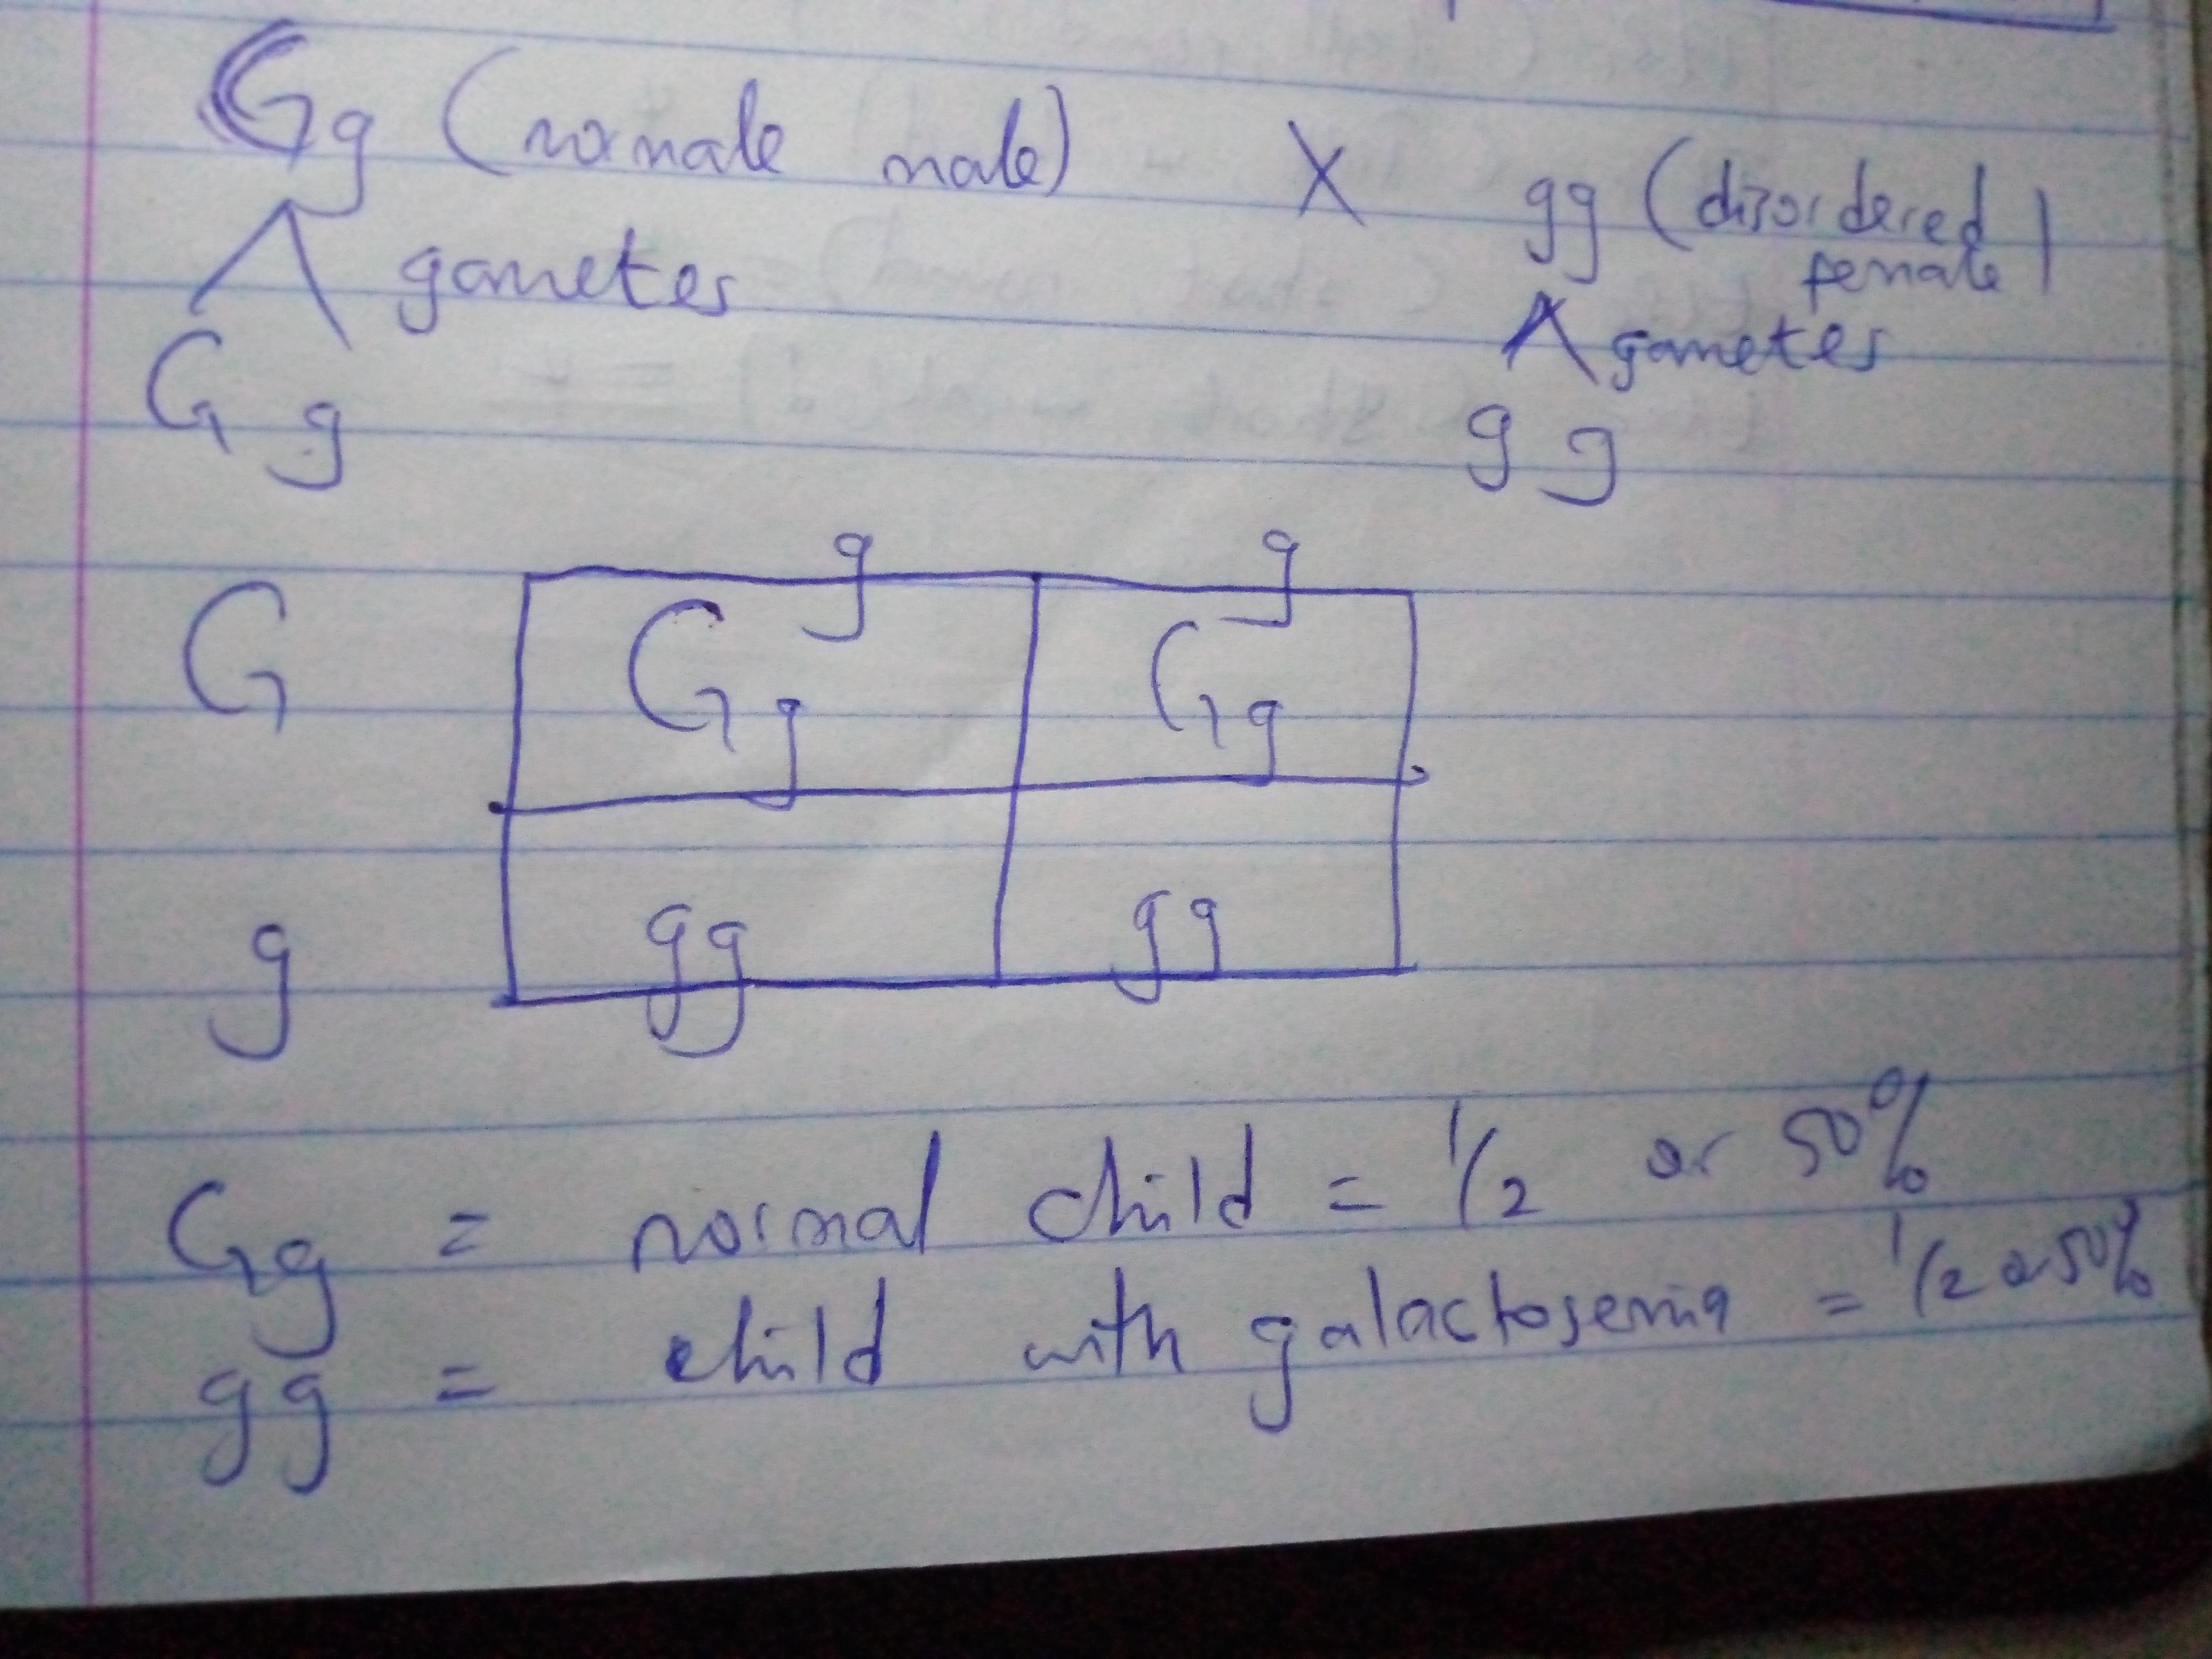 Gg (normale male) X gg (disordered
female)
gametes
gametes
G g
g g
g g
G Gg Gg
g gg gg
Gg = normal child = 1/2 or 50%
gg = child with galactosemia = 1/2 or 50%